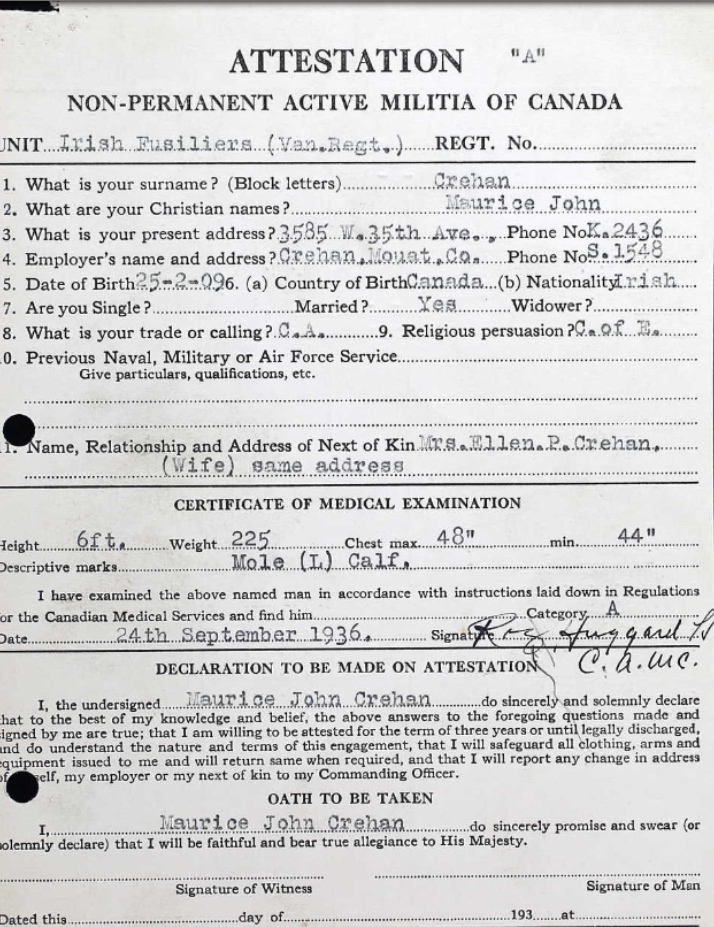 ATTESTATION "A"
NON-PERMANENT ACTIVE MILITIA OF CANADA
UNIT Irish Fusiliers (Van.Regt.) REGT. No.
1. What is your surname? (Block letters) Crehan
2. What are your Christian names? Maurice John
3. What is your present address? 3585 W.35th Ave., Phone No K.2436
4. Employer's name and address? Crehan,Mouat,Co. Phone No S.1548
5. Date of Birth 25-2-09 6. (a) Country of Birth Canada (b) Nationality Irish
7. Are you Single? Married? Yes Widower?
8. What is your trade or calling? C.A. 9. Religious persuasion? C.of E.
0. Previous Naval, Military or Air Force Service
Give particulars, qualifications, etc.
11. Name, Relationship and Address of Next of Kin Mrs.Ellen.P.Crehan,
(Wife) same address
CERTIFICATE OF MEDICAL EXAMINATION
Height 6ft. Weight 225 Chest max. 48" min. 44"
Descriptive marks Mole (L) Calf.
I have examined the above named man in accordance with instructions laid down in Regulations
for the Canadian Medical Services and find him Category A
Date 24th September 1936. Signature Huggard
C.A.M.C.
DECLARATION TO BE MADE ON ATTESTATION
I, the undersigned Maurice John Crehan do sincerely and solemnly declare
that to the best of my knowledge and belief, the above answers to the foregoing questions made and
signed by me are true; that I am willing to be attested for the term of three years or until legally discharged,
and do understand the nature and terms of this engagement, that I will safeguard all clothing, arms and
equipment issued to me and will return same when required, and that I will report any change in address
of self, my employer or my next of kin to my Commanding Officer.
OATH TO BE TAKEN
I, Maurice John Crehan do sincerely promise and swear (or
solemnly declare) that I will be faithful and bear true allegiance to His Majesty.
Signature of Witness Signature of Man
Dated this day of 193 at